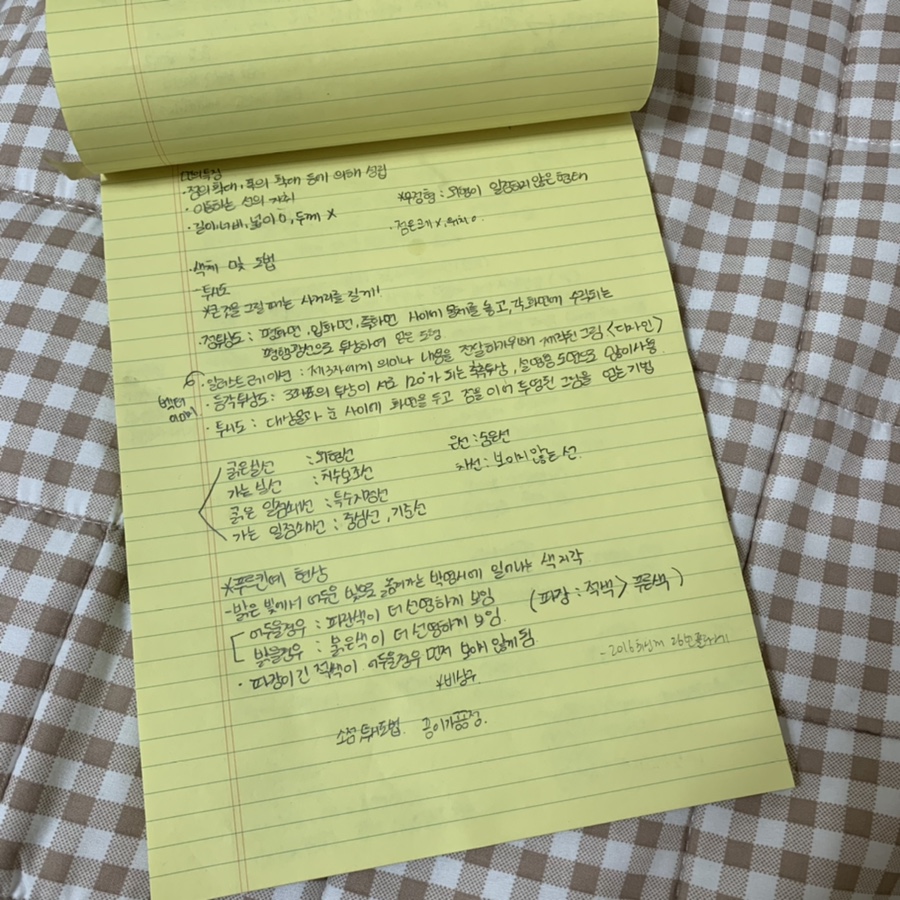 면의특징
·점의확대, 폭의 확대 등에 의해 성립
·이동하는 선의 자취
*부정형 : 외형이 일정하지 않은 형태
·길이,너비,넓이 O, 두께 X
·점은크기 X, 위치 O.
·색채 및 도법
-투시도
*큰것을 그릴때는 시거리를 길게!
·정투상도 : 평화면, 입화면, 측화면 사이에 물체를 놓고, 각 화면에 수직되는
평행광선으로 투상하여 얻은 도형
·일러스트레이션 : 제3자에게 의미나 내용을 전달하기위해 제작된 그림 <디자인>
·등각투상도 : 3좌표의 투상이 서로 120°가 되는 축측투상, 설명용 도면으로 많이사용
·투시도 : 대상물과 눈 사이에 화면을 두고 점을 이어 투영된 그상을 얻는 기법
굵은실선 : 외형선
은선 : 숨은선
가는 실선 : 치수보조선
: 보이지 않는 선
굵은 일점쇄선 : 특수지정선
가는 일점쇄선 : 중심선, 기준선
*푸르킨예 현상
-밝은 빛에서 어두운 빛으로 옮겨가는 박명시에 일어나는 색 지각
어두울경우 : 파란색이 더 선명하게 보임
(파장 : 적색 > 푸른색)
밝을경우 : 붉은색이 더 선명하게 보임.
·파장이 긴 적색이 어두울경우 먼저 보이지 않게 됨
*비상구.
소점 투시도법.